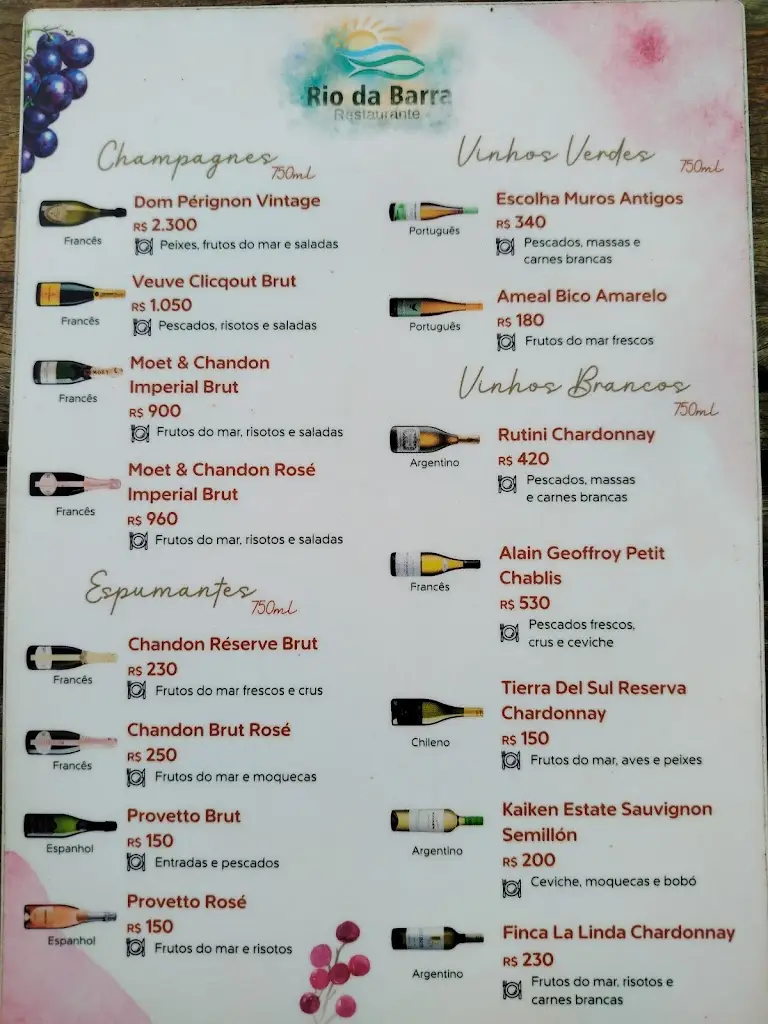 Rio da Barra
Restaurante
Champagnes
750ml
Dom Pérignon Vintage
R$ 2.300
Francês
Peixes, frutos do mar e saladas
Veuve Clicqout Brut
R$ 1.050
Francês
Pescados, risotos e saladas
Moet & Chandon
Imperial Brut
R$ 900
Francês
Frutos do mar, risotos e saladas
Moet & Chandon Rosé
Imperial Brut
R$ 960
Francês
Frutos do mar, risotos e saladas
Espumantes
750ml
Chandon Réserve Brut
R$ 230
Francês
Frutos do mar frescos e crus
Chandon Brut Rosé
R$ 250
Francês
Frutos do mar e moquecas
Provetto Brut
R$ 150
Espanhol
Entradas e pescados
Provetto Rosé
R$ 150
Espanhol
Frutos do mar e risotos
Vinhos Verdes
750ml
Escolha Muros Antigos
R$ 340
Português
Pescados, massas e
carnes brancas
Ameal Bico Amarelo
R$ 180
Português
Frutos do mar frescos
Vinhos Brancos
750ml
Rutini Chardonnay
R$ 420
Argentino
Pescados, massas
e carnes brancas
Alain Geoffroy Petit
Chablis
R$ 530
Francês
Pescados frescos,
crus e ceviche
Tierra Del Sul Reserva
Chardonnay
R$ 150
Chileno
Frutos do mar, aves e peixes
Kaiken Estate Sauvignon
Semillón
R$ 200
Argentino
Ceviche, moquecas e bobó
Finca La Linda Chardonnay
R$ 230
Argentino
Frutos do mar, risotos e
carnes brancas